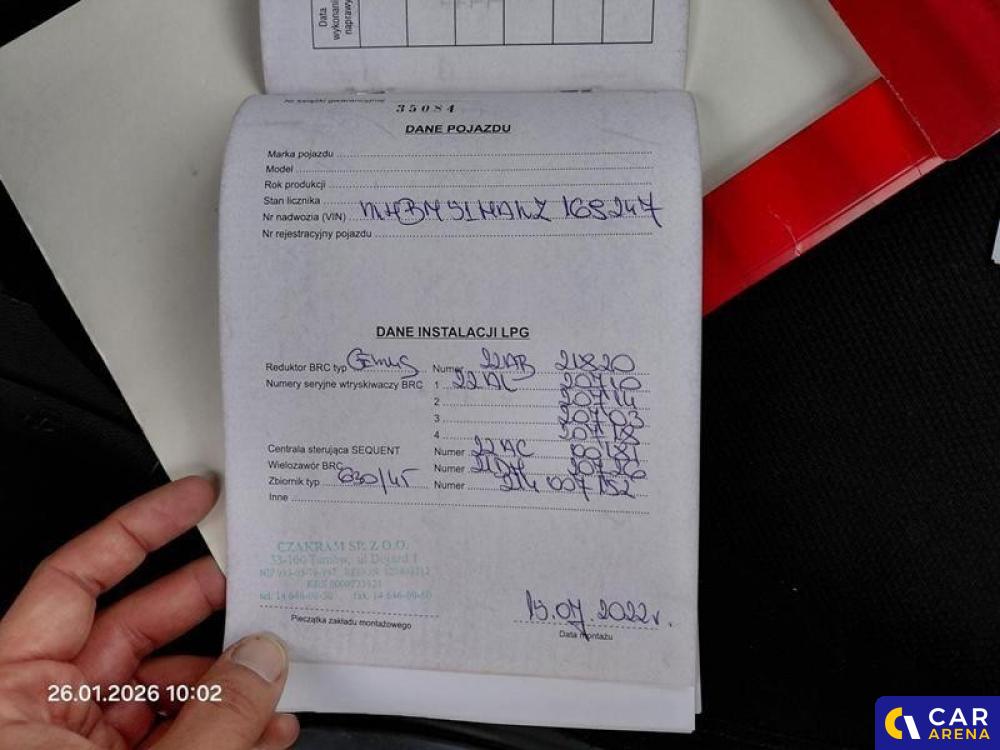 Data
wykonania
naprawy
Nr książki gwarancyjnej 35084
DANE POJAZDU
Marka pojazdu
Model
Rok produkcji
Stan licznika
Nr nadwozia (VIN) 168247
Nr rejestracyjny pojazdu
DANE INSTALACJI LPG
Reduktor BRC typ Genius Numer 22AB 21820
Numery seryjne wtryskiwaczy BRC 1 20710
2 20714
3 20703
4 20718
Centrala sterująca SEQUENT Numer 22AC
Wielozawór BRC Numer
Zbiornik typ 630/45 Numer
Inne
CZAKRAM SP. Z O.O.
33-100 Tarnów, ul.
Pieczątka zakładu montażowego
15.07.2022r.
Data montażu
26.01.2026 10:02
CAR
ARENA